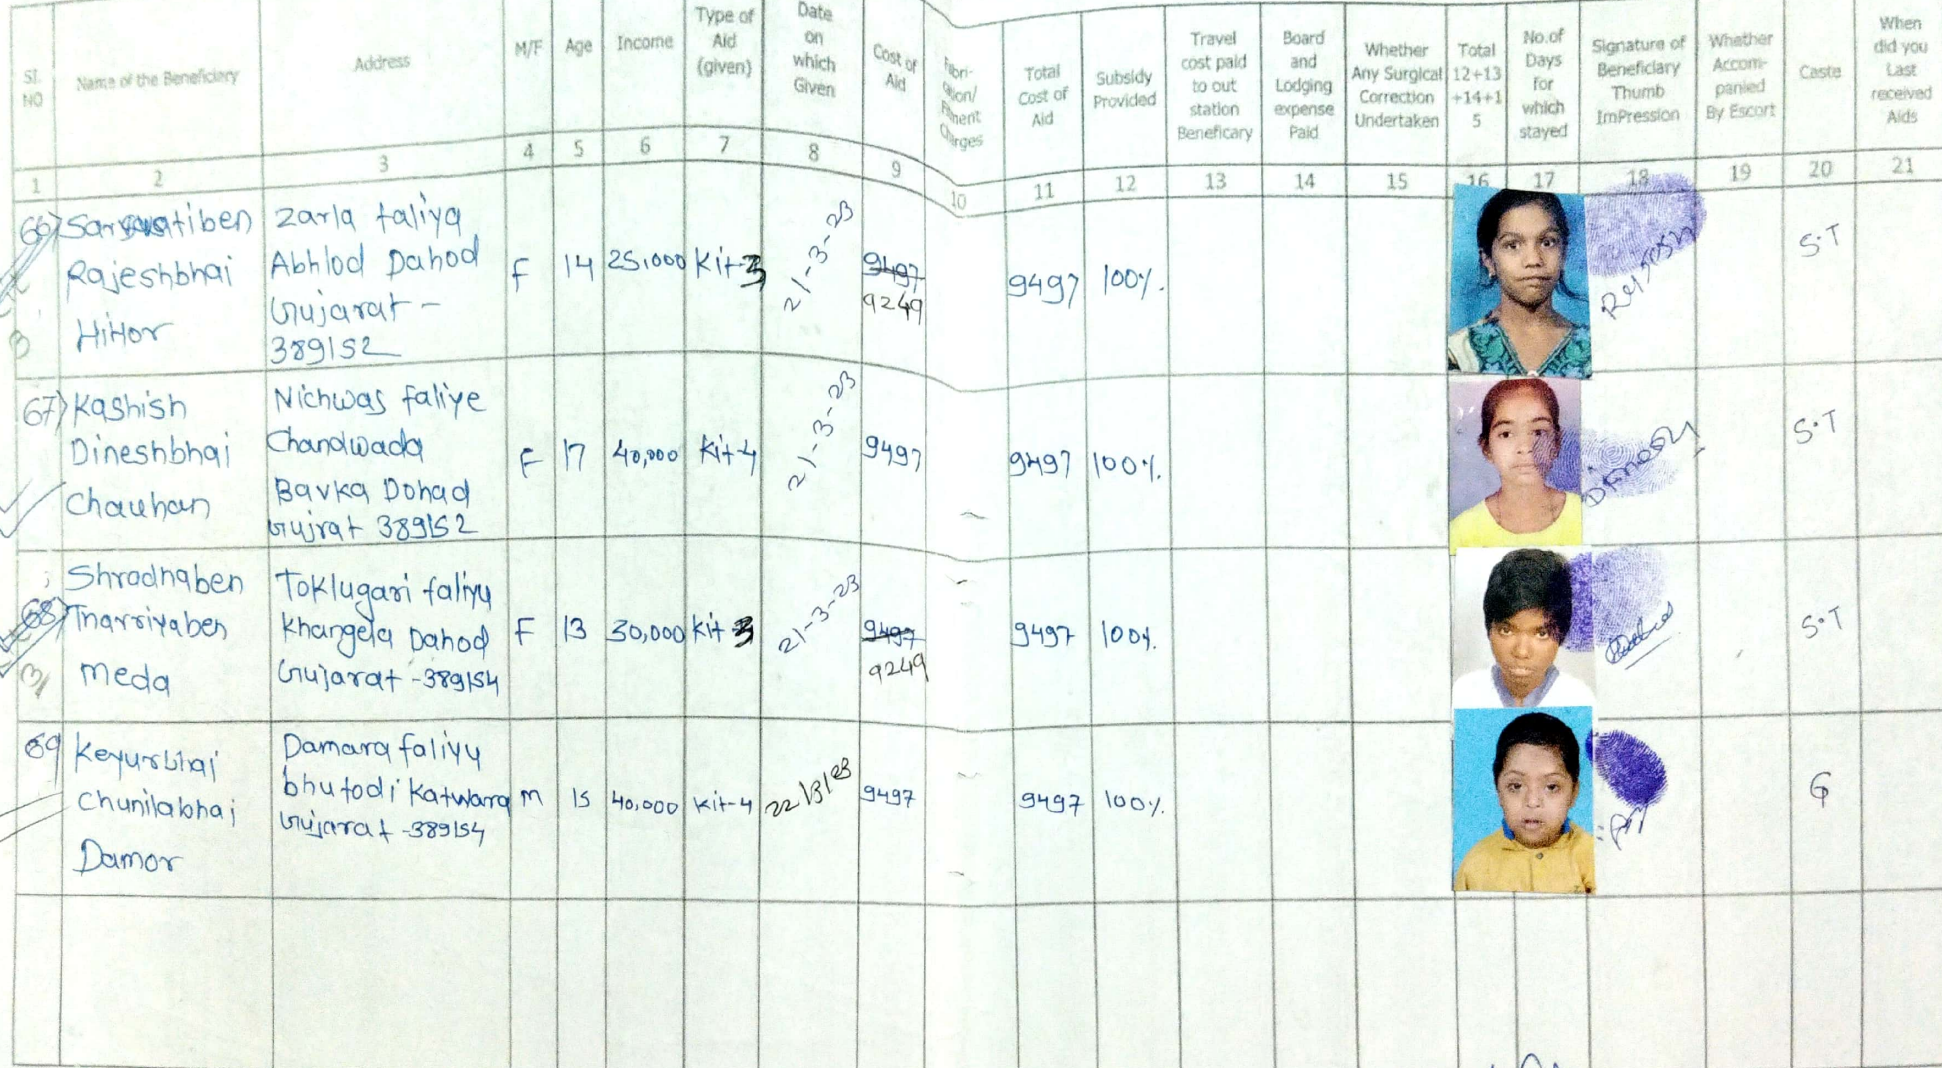 Sl. NO
Name of the Beneficiary
Address
M/F
Age
Income
Type of Aid (given)
Date on which Given
Cost of Aid
Total Cost of Aid
Subsidy Provided
Travel cost paid to out station Beneficary
Board and Lodging expense Paid
Whether Any Surgical Correction Undertaken
Total 12+13 +14+1 5
No.of Days for which stayed
Signature of Beneficiary Thumb ImPression
Whather Accom- panied By Escort
Caste
When did you Last received Aids
1 2 3 4 5 6 7 8 9 10 11 12 13 14 15 16 17 18 19 20 21
66)
Rajeshbhai
Zarla faliya
Abhlod Dahod
Gujarat -
389152
F 14 25,000 Kit-3 21-3-23
9497
9249
9497 100%.
S.T
67) Kashish
Dineshbhai
Chauhan
Nichwas faliye
Chandwada
Bavka Dohad
Gujrat 389152
F 17 40,000 Kit-4 21-3-23 9497
9497 100%.
S.T
68)
Meda
Khangela Dahod
Gujarat -389154
F 13 30,000 Kit 3 21-3-23
9497
9249
9497 100%.
S.T
69 Keyurbhai
Chunilabhai
Damor
Damara faliyu
bhutodi Katwara
Gujarat -389154
M 15 40,000 Kit-4 22/3/23 9497
9497 100%.
G